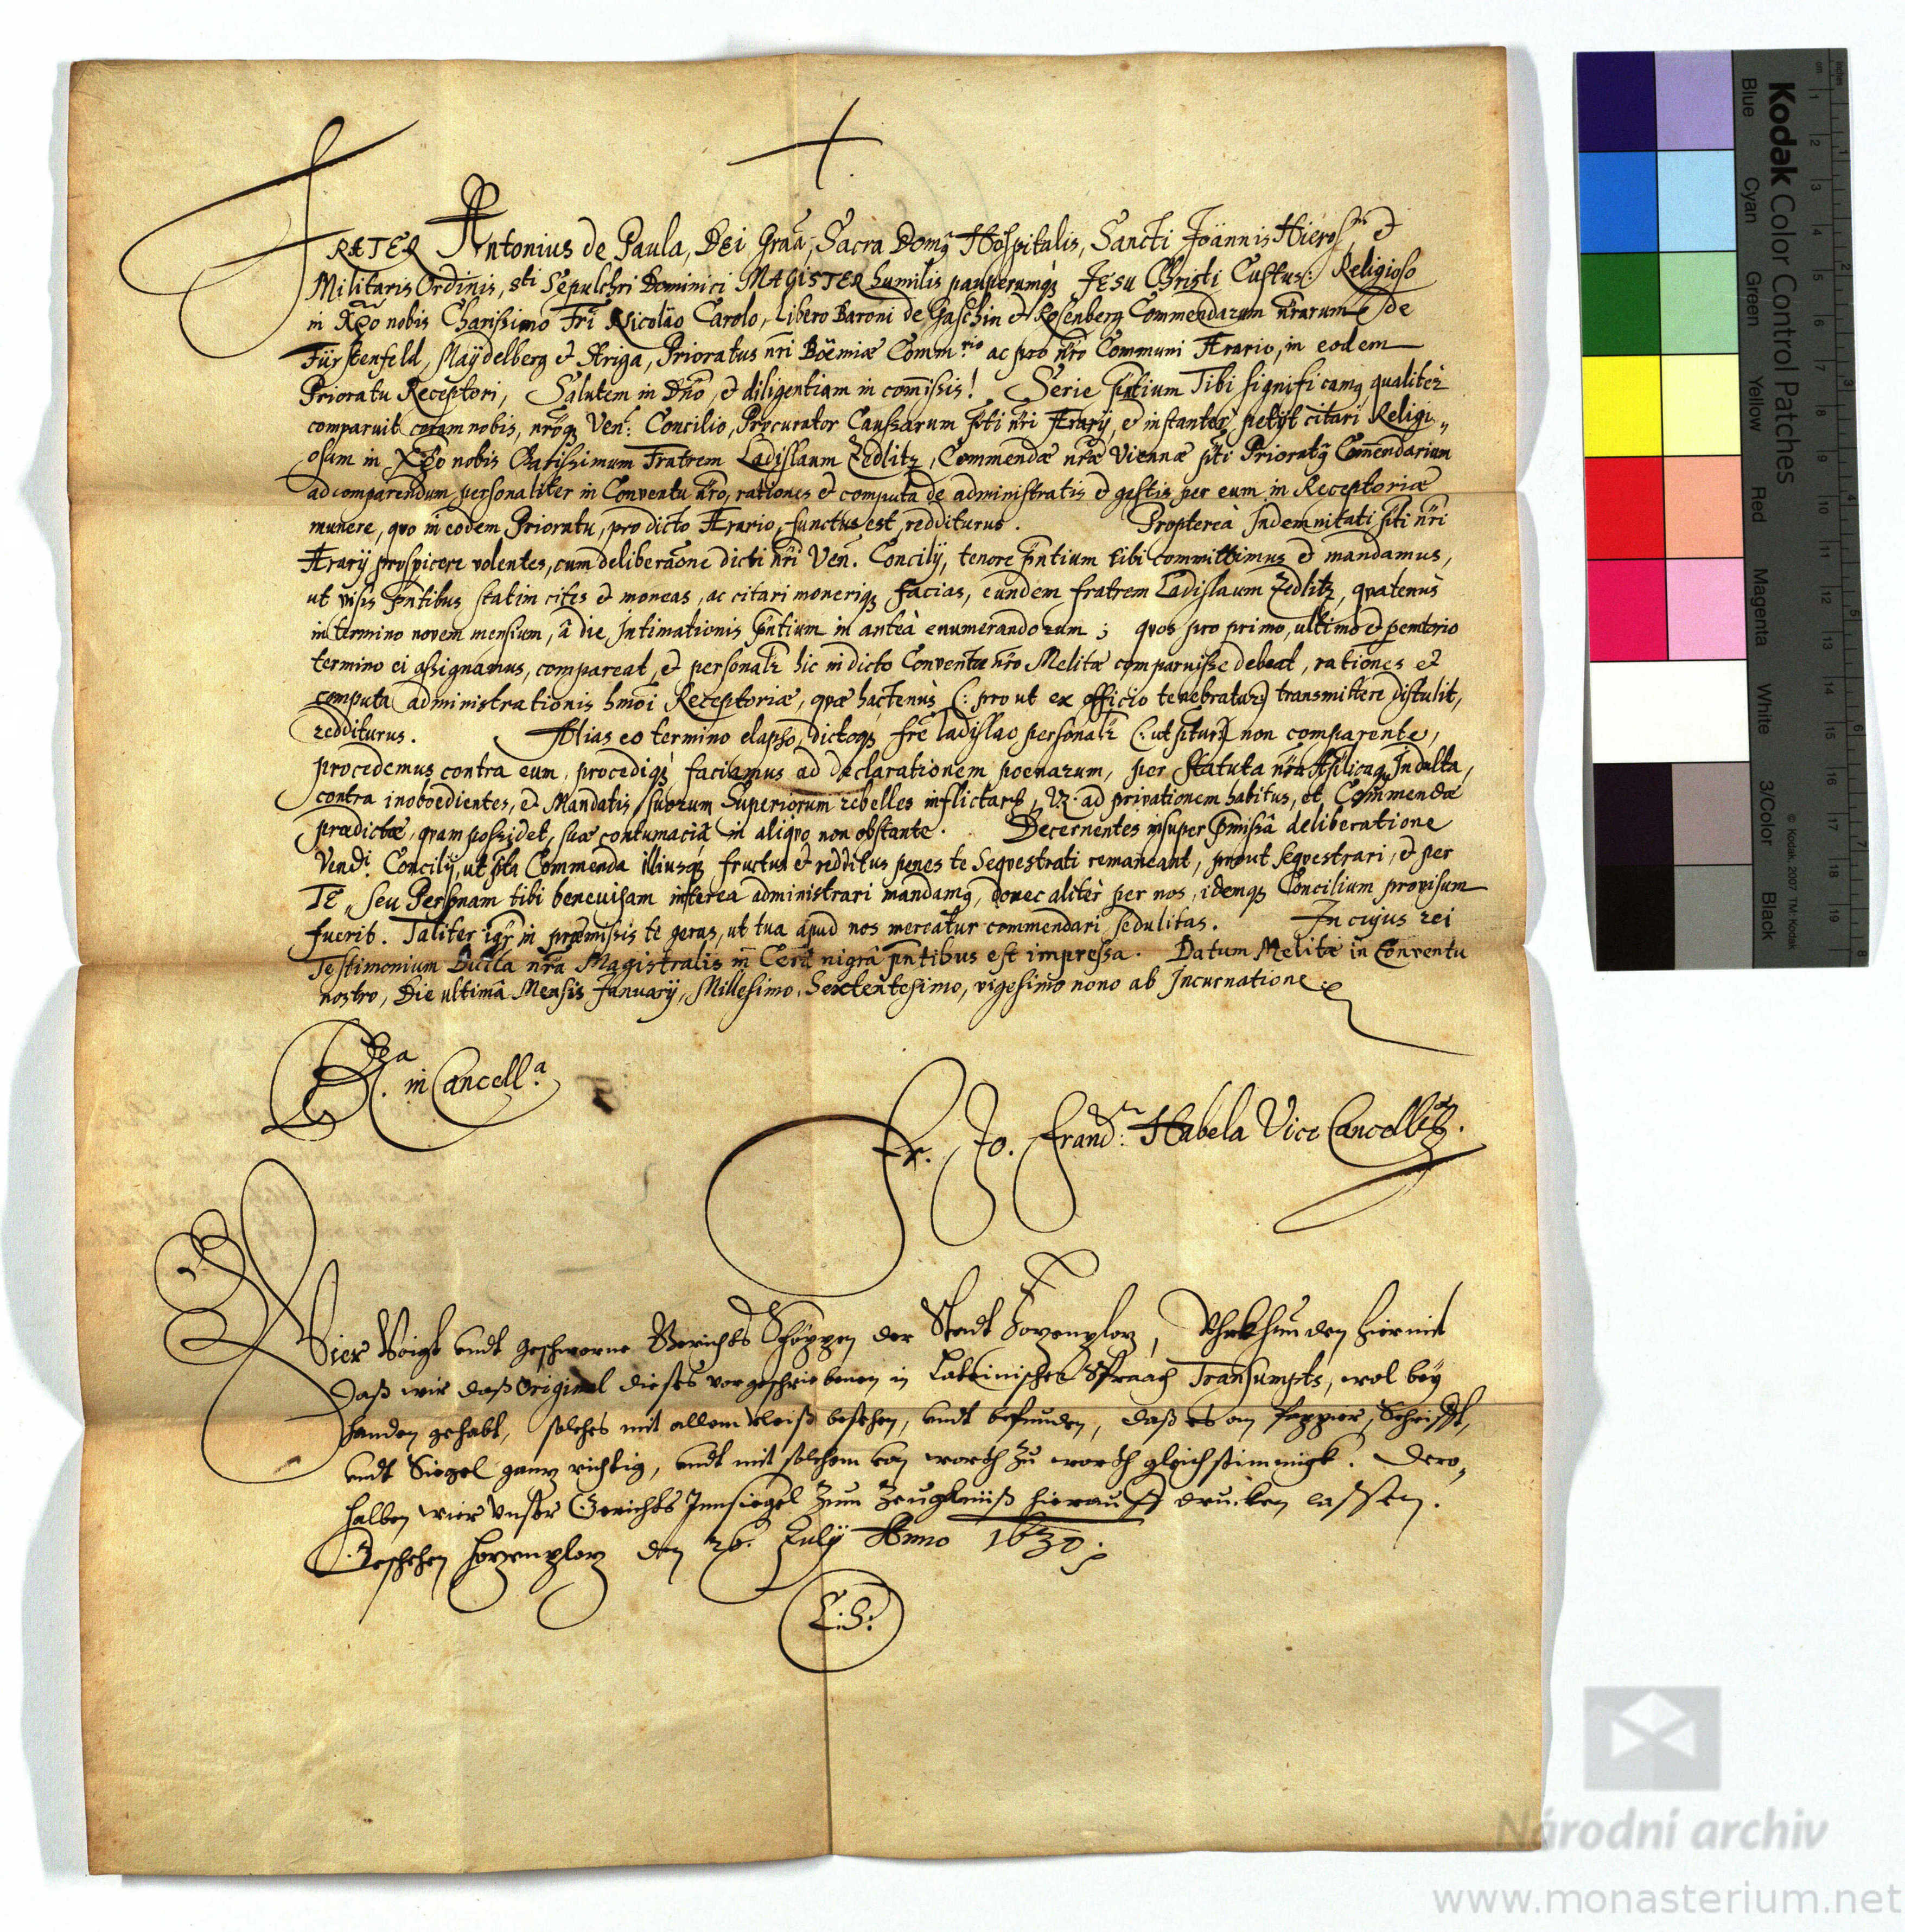 FRATER Antonius de Paula, Dei Gra͠a, Sacra Domꝰ Hospitalis, Sancti Joannis Hieros: et
Militaris Ordinis, sti Sepulchri Dominici MAGISTER humilis pauperumqꝫ JESU Christi Custus: Religioso
in Xp͠o nobis Charissimo Fr͠i Nicolao Carolo, libero Baroni de Gaschin et Rosenberg Commendarum n͠rarum de
Fürstenfeld, Maÿdelberg et Striga, Prioratus n͠ri Böemiæ Comm.rio ac pro n͠ro Communi Ærario, in eodem
Prioratu Receptori, Salutem in Dn͠o, et diligentiam in comissis! Serie p͠ntium Tibi significamꝰ, qualiter
comparuit coram nobis, n͠roqꝫ Ven: Concilio, Procurator Caussarum p͠ti n͠ri Ærarÿ, et instanter petÿt citari Religi„
osum in Xp͠o nobis Charissimum Fratrem Ladislaum Zedlitz, Commendæ n͠ræ Viennæ p͠ti Prioratꝰ Com͠endarium
ad comparendum personaliter in Conventu n͠ro, rationes et computa de administratis et gestis per eum in Receptoriæ
munere, quo in eodem Prioratu, pro dicto Ærario, functus est, redditurus. Propterea Indemnitati p͠ti n͠ri
Ærarÿ prospicere volentes, cum deliberao͠ne dicti n͠ri Ven. Concilÿ, tenore p͠ntium tibi committimus et mandamus,
ut visis p͠ntibus statim cites et moneas, ac citari moneriqꝫ facias, eundem fratrem Ladislaum Zedlitz, quatenus
in termino novem mensium, â die Intimationis p͠ntium in anteà enumerandorum; quos pro primo, ultimo et pem͠torio
termino ei assignamus, compareat, et personalr̃ hic in dicto Conventu n͠ro Melitæ comparuisse debeat, rationes et
computa administrationis hm͠oi Receptoriæ, quæ hactenùs (: prout ex officio tenebratur :) transmittere distulit,
redditurus. Alias eo termino elapso, dictoqꝫ fr͠e ladislao personalr̃ (: ut p͠tur :) non comparente,
procedemus contra eum, procediqꝫ faciamus ad declarationem poenarum, per Statuta n͠ra Ap͠licaqꝫ Indulta,
contra inoboedientes, et Mandatis suorum Superiorum rebelles inflictarꝫ, Vꝫ. ad privationem habitus, et Commendæ
prædictæ, quam possidet, suæ contumaciâ in aliquo non obstante. Decernentes insuper p͠missâ deliberatione
Vendi. Concilÿ, ut p͠ta Commenda illiusqꝫ fructus et redditus penes te Sequestrati remaneant, prout sequestrari, et per
TE, seu Personam tibi benevisam interea administrari mandamꝰ, donec alcter per nos, idemqꝫ Concilium provisum
fuerit. Taliter igr̃ in præmissis te geras, ut tua apud nos mereatur commendari sedulitas. In cujus rei
Testimonium Bulla n͠ra Magistralis in Cerâ nigrâ p͠ntibus est impressa. Datum Melitæ in Conventu
nostro, Die ultimâ Mensis Januarÿ, Millesimo, Sexcentesimo, vigesimo nono ab Incarnatione.
Rta. in Cancella.
Fr. Jo. Francus: Habela Vice Cancellrius.
Wier Voigt undt geschworne Gerichts Schöppen der Stadt Hozenploz, Uhrkhunden hiermit
daß wir daß Original dieses vorgeschriebenen in Lateinischer Spraach Transumpts, wol bey
handen gehabt, solches mit allem vleiß besehen, undt befunden, daß es an Pappier, Schrifft,
undt Siegel ganz richtig, undt mit solchem von worth zu worth gleichstimmigk. Dero„
halben wier Unser Gerichts Innsiegel zum Zeugknüß hierauff drucken lassen.
Geschehen Hozenploz den 26. Julÿ Anno 1630.
L:S:
Kodak Color Control Patches
Blue Cyan Green Yellow Red Magenta White 3/Color Black
© Kodak, 2007 TM: Kodak
Národní archiv
www.monasterium.net